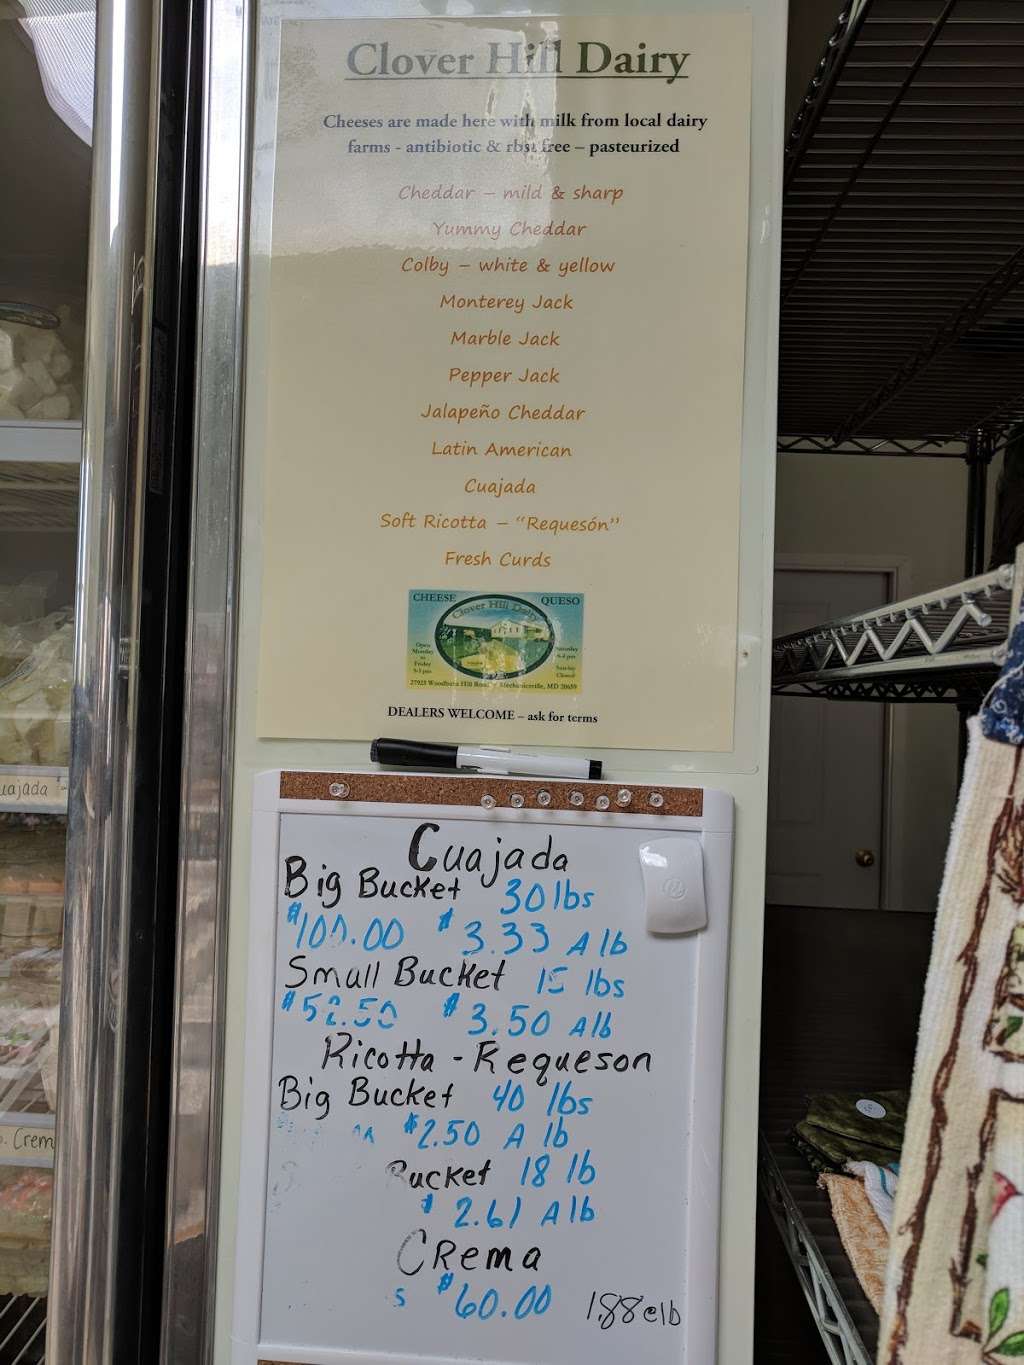 Clover Hill Dairy
Cheeses are made here with milk from local dairy
farms - antibiotic & rbst free – pasteurized
Cheddar – mild & sharp
Yummy Cheddar
Colby – white & yellow
Monterey Jack
Marble Jack
Pepper Jack
Jalapeño Cheddar
Latin American
Cuajada
Soft Ricotta – “Requesón”
Fresh Curds
CHEESE QUESO
Clover Hill Dairy
Open
Monday
to
Friday
Saturday
Sunday
Closed
27925 Woodburn Hill Road Mechanicsville, MD 20659
DEALERS WELCOME – ask for terms
Cuajada
Big Bucket 30 lbs
$100.00 $3.33 A lb
Small Bucket 15 lbs
$52.50 $3.50 A lb
Ricotta - Requeson
Big Bucket 40 lbs
$2.50 A lb
Bucket 18 lb
$2.61 A lb
Crema
$60.00 1.88 e lb
uajada
Crem